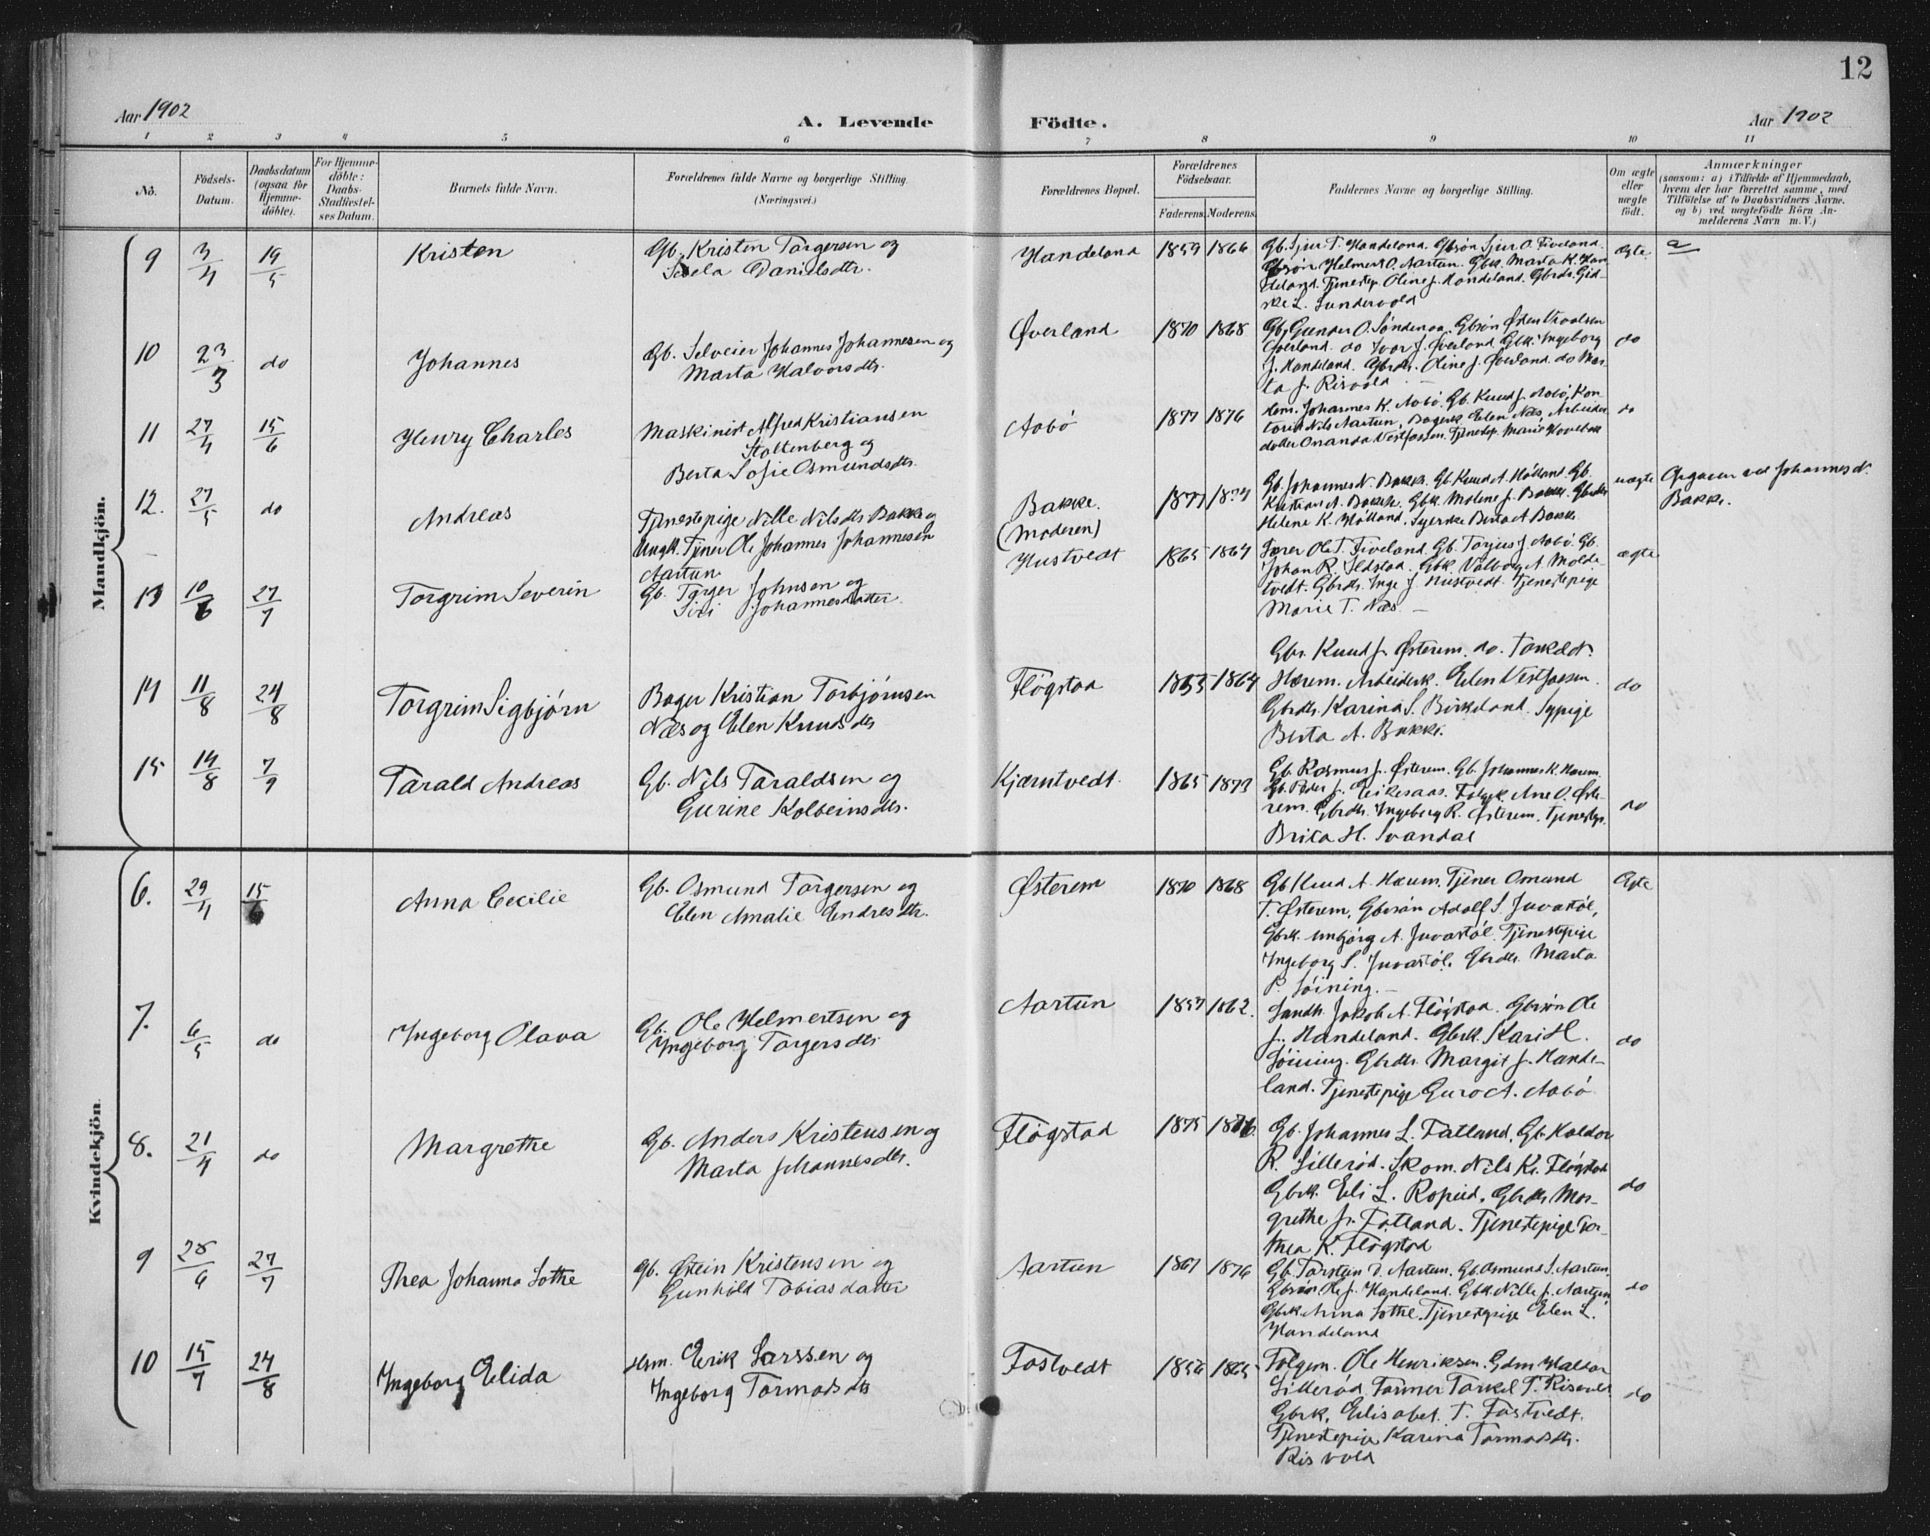 12
Aar 1902
A. Levende
Födte.
Aar 1902
1 2 3 4 5 6 7 8 9 10 11
No.
Födsels-
Datum.
Daabsdatum
(ogsaa for
Hjemme-
döbte).
For Hjemme-
döbte:
Daabs-
Stadfæstel-
ses Datum.
Barnets fulde Navn.
Forældrenes fulde Navne og borgerlige Stilling.
(Næringsvei.)
Forældrenes Bopæl.
Forældrenes
Födselsaar.
Faderens. Moderens.
Faddernes Navne og borgerlige Stilling.
Om ægte
eller
uægte
födt.
Anmærkninger
(saasom: a) i Tilfælde af Hjemmedaab,
hvem der har forrettet samme, med
Tilföielse af to Daabsvidners Navne,
og b) ved uægtefödte Börn An-
melderens Navn m. V.)
Mandkjön.
9 3/4 19/5 Kristen
Gb. Kristen Torgersen og
Danielsdtr.
Handeland 1859 1866
Gb. Sjur T. Handeland. Gbsøn Sjur O. Fiveland.
Gbsøn Helmer O. Aartun. Gbk. Marta K. Han
deland. Tjenestep. Oline J. Handeland. Gbrdtr. Gid-
ske L. Sundervold
ægte
10 23/3 do Johannes
Gb. Selveier Johannes Johannesen og
Marta Halvorsdtr.
Øverland 1870 1868
Gb. Gunder O. Søndenaa. Gbsøn Østen
Øverland. do Ivar J. Øverland. Gbk. Ingeborg
J. Handeland. Gbrdtr. Oline J. Øverland. do Mar-
ta J. Risvold
do
11 27/4 15/6 Henry Charles
Maskinist Alfred Kristiansen
Stoltenberg og
Berta Sofie Osmundsdtr.
Aabø 1877 1876
Johannes K. Aabø. Gb. Knud J. Aabø, Kon
torist Nils Aartun, Bagersk. Elen Næs, Arbeider
datter Amanda Vestfossen. Tjenestep. Marie
do
12. 27/5 do Andreas
Tjenestepige Nille Nilsdtr Bakke og
Ungk. Tjener Ole Johannes Johannesen
Aartun
Bakke.
(Moderen)
1877
Gb. Johannes N. Bakke. Gb. Knud A. Hølland. Gb.
Kristian A. Bakke. Gbk. Malene J. Bakke. Gbrdtr
Helene K. Hølland. Syerske Berta A Bakke
uægte
Opgaven ved Johannes N.
Bakke.
13 10/6 27/7 Torgrim Severin
Gb. Torger Johnsen og
Siri Johannesdatter
Hustvedt 1865 1867
Lærer Ole T. Fiveland. Gb. Torjus J. Aabø. Gb.
Johan R. Ilstad. Gbk. Valborg A. Molde-
tvedt. Gbrdtr. Inge J. Hustvedt. Tjenestepige
Marie T. Næs.
ægte
14 11/8 24/8 Torgrim Sigbjørn
Bager Kristian Torbjørnsen
Næs og Elen Knudsdtr
Fløgstad 1864
Gbr. Knud J. Østerem. do. Torkel N.
Hærem. Arbeidersk. Elen Vestfossen.
Gbrdtr. Karina S. Birkeland. Sypige
Berta A. Bakke.
do
15 14/8 7/9 Tarald Andreas
Gb. Nils Taraldsen og
Gurine Kolbeinsdtr.
Kjærntvedt. 1865 1873
Gb. Rasmus J. Østerem. Gb. Johannes K. Hærem.
Gb. Peder J. Eikesaas. Folgek. Ane O. Øste-
rem. Gbrdtr. Ingeborg R. Østerem. Tjenestep.
Brita H. Svandal
do
Kvindekjön.
6. 29/4 15/6 Anna Cecilie
Gb. Osmund Torgersen og
Elen Amalie Endresdtr.
Østerem 1870 1868
Gb Knud A. Hærem. Tjener Osmund
T. Østerem, Gbrsøn Adolf S. Juvastøl,
Gbrk. Umbjørg A. Juvastøl. Tjenestepige
Ingeborg S. Juvastøl. Gbrdtr. Marta
P. Løining.
Ægte
7. 6/5 do Ingeborg Olava
Gb. Ole Helmertsen og
Ingeborg Torgersdtr.
Aartun 1857 1862.
Landh. Jakob A. Fløgstad. Gbrsøn Ole
J. Handeland. Gbrk. Kari H.
Løining. Gbrdtr. Margit J. Hande-
land. Tjenestepige Guro A. Aabø
do
8. 21/4 do Margrethe
Gb. Anders Kristensen og
Marta Johannesdtr.
Fløgstad 1875
Gb. Johannes L. Fatland, Gb Haldor
R. Lillerød. Skom. Nils K. Fløgstad
Gbrk. Eli L. Ropeid, Gbrdtr. Mar-
grethe J. Fatland. Tjenestepige Tor-
thea K. Fløgstad
do
9 28/6 27/7 Thea Johanna Lothe
Gb. Østein Kristensen og
Gunhild Tobiasdatter
Aartun 1867 1876
Gb. Torsten T. Aartun. Gb. Osmund S. Aartun.
Gbrsøn Ole J. Handeland. Gbk. Nille J. Aartun
Gbrk Anna Lothe. Tjenestepige Elen L.
Handeland
do
10 15/7 24/8 Ingeborg Elida
Hsm. Eerik Larssen og
Ingeborg Tormodsdtr
Fostvedt 1856 1865
Folgem. Ole Henriksen. Gdm Haldor
Lillerød. Farmer Torkel T. Risvold
Gbrk. Elisabet T. Fostvedt.
Tjenestepige Karina Tormodsdtr.
Risvold
do